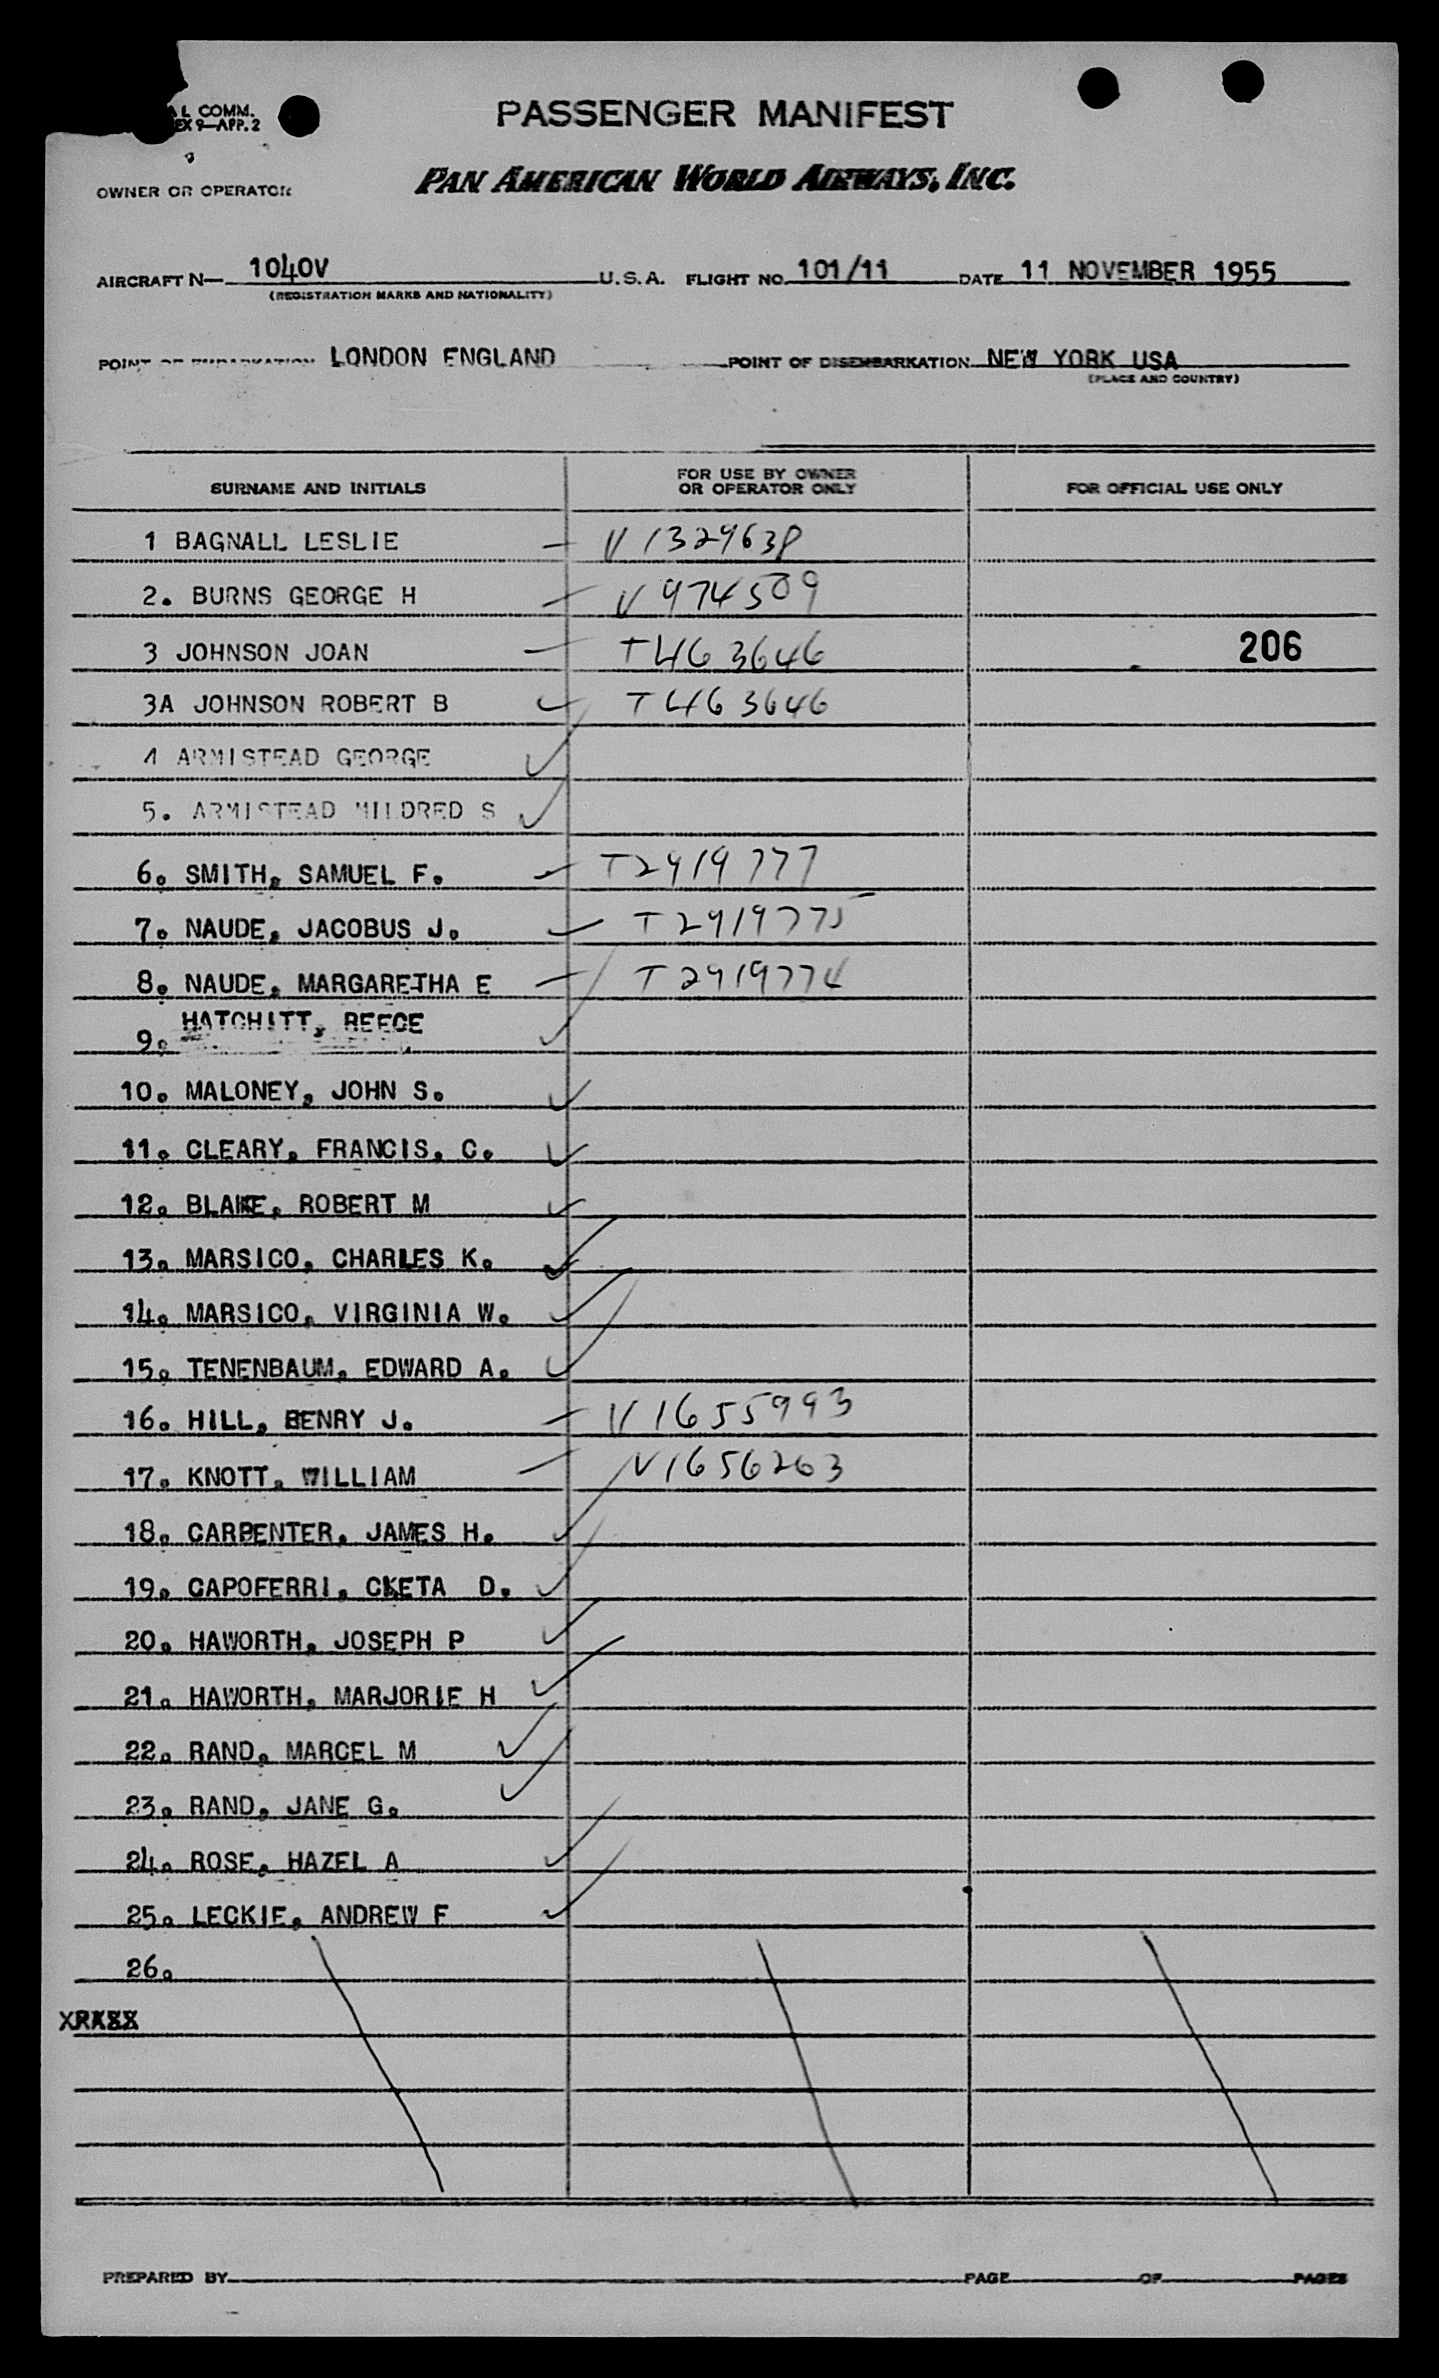 AL COMM.
EX 9—APP.2
PASSENGER MANIFEST
OWNER OR OPERATOR
PAN AMERICAN WORLD AIRWAYS, INC.
AIRCRAFT N— 1040V U.S.A. FLIGHT NO. 101/11 DATE 11 NOVEMBER 1955
(REGISTRATION MARKS AND NATIONALITY)
POINT OF EMBARKATION LONDON ENGLAND POINT OF DISEMBARKATION NEW YORK USA
(PLACE AND COUNTRY)
SURNAME AND INITIALS FOR USE BY OWNER OR OPERATOR ONLY FOR OFFICIAL USE ONLY
1 BAGNALL LESLIE — V 1329638
2. BURNS GEORGE H — V 974509
3 JOHNSON JOAN — T463646 206
3A JOHNSON ROBERT B T463646
4 ARMISTEAD GEORGE ✓
5. ARMISTEAD MILDRED S ✓
6. SMITH, SAMUEL F. — T2919777
7. NAUDE, JACOBUS J. — T2919775
8. NAUDE, MARGARETHA E — T2919774
9. HATCHITT, REECE ✓
10. MALONEY, JOHN S. ✓
11. CLEARY, FRANCIS, C. ✓
12. BLAKE, ROBERT M ✓
13. MARSICO, CHARLES K. ✓
14. MARSICO, VIRGINIA W. ✓
15. TENENBAUM, EDWARD A. ✓
16. HILL, BENRY J. — V1655993
17. KNOTT, WILLIAM — V1656263
18. CARPENTER, JAMES H. ✓
19. CAPOFERRI, CKETA D. ✓
20. HAWORTH, JOSEPH P ✓
21. HAWORTH, MARJORIE H ✓
22. RAND, MARCEL M ✓
23. RAND, JANE G. ✓
24. ROSE, HAZEL A ✓
25. LECKIE, ANDREW F ✓
26.
PREPARED BY PAGE OF PAGES